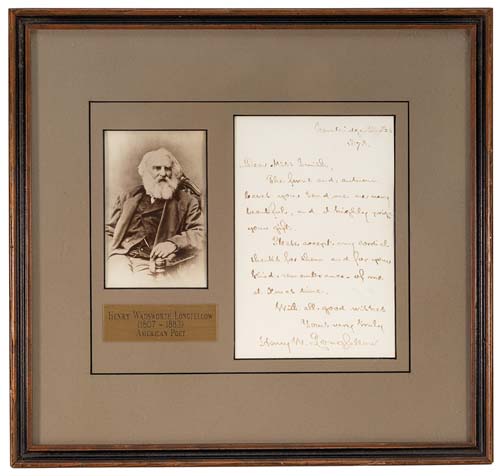 HENRY WADSWORTH LONGFELLOW
(1807 – 1882)
AMERICAN POET
Cambridge
1878.
Dear Miss Smith,
The fruit and autumn
leaves you send me are very
beautiful, and I highly prize
your gift.
Please accept my cordial
thanks for them and for your
kind remembrance of me
at Xmas time.
With all good wishes
Yours very truly
Henry W. Longfellow